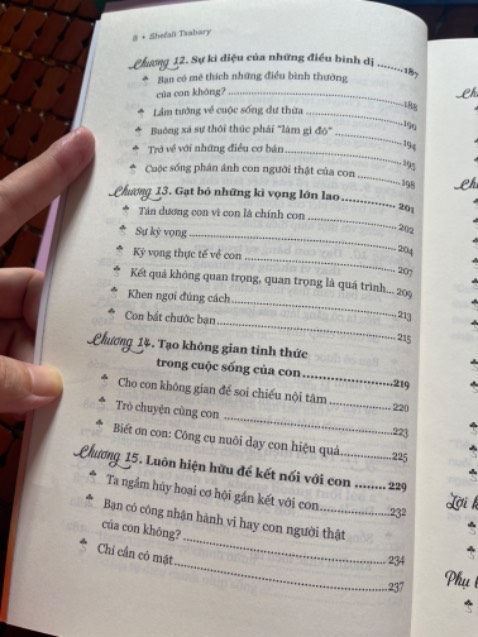 8 • Shefali Tsabary
Chương 12. Sự kì diệu của những điều bình dị ........187
Bạn có mê thích những điều bình thường
của con không? ........188
Lầm tưởng về cuộc sống dư thừa ........190
Buông xả sự thôi thúc phải "làm gì đó" ........194
Trở về với những điều cơ bản ........195
Cuộc sống phản ánh con người thật của con ........198
Chương 13. Gạt bỏ những kì vọng lớn lao ........201
Tán dương con vì con là chính con ........202
Sự kỳ vọng ........204
Kỳ vọng thực tế về con ........207
Kết quả không quan trọng, quan trọng là quá trình... 209
Khen ngợi đúng cách ........213
Con bắt chước bạn ........215
Chương 14. Tạo không gian tỉnh thức
trong cuộc sống của con ........219
Cho con không gian để soi chiếu nội tâm ........220
Trò chuyện cùng con ........223
Biết ơn con: Công cụ nuôi dạy con hiệu quả ........225
Chương 15. Luôn hiện hữu để kết nối với con ........ 229
Ta ngầm hủy hoại cơ hội gắn kết với con ........232
Bạn có công nhận hành vi hay con người thật
của con không? ........234
Chỉ cần có mặt ........237
Ch
Ch
Lời k
Phụ